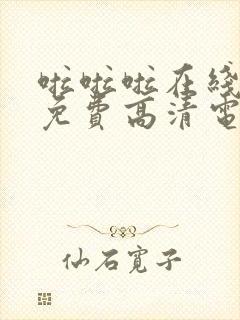 啦啦啦在綫
免費高清電
仙石寬子